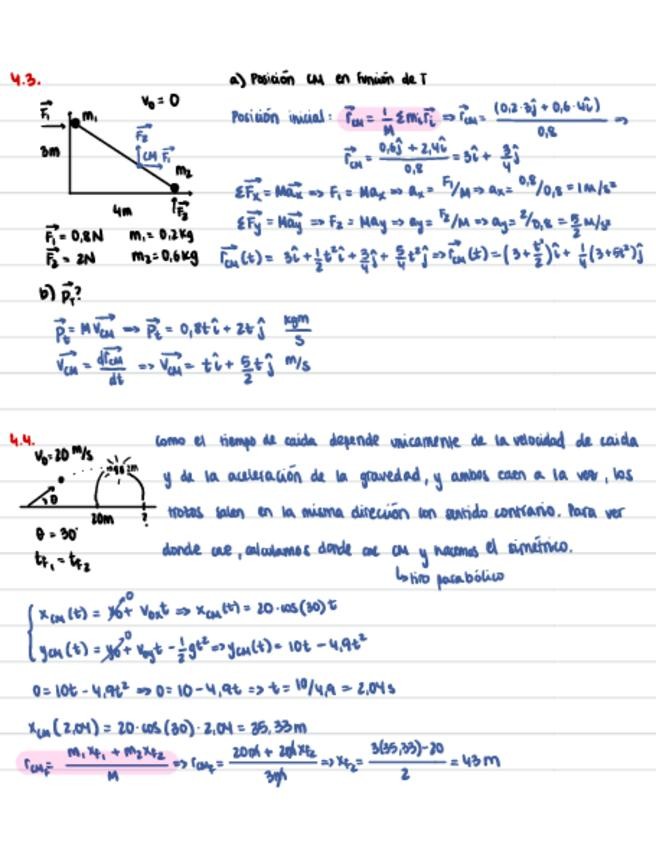 4.3.
a) Posición CM en función de T
F₁→ m₁ V₀ = 0
3m F₂→ CM F₁→ m₂
4m F₂→
F₁→ = 0,8N m₁ = 0,2kg
F₂→ = 2N m₂ = 0,6kg
Posición inicial: r⃗CM = 1/M Σmᵢr⃗ᵢ => r⃗CM = (0,2·3ĵ + 0,6·4î)/0,8 =>
r⃗CM = (0,6ĵ + 2,4î)/0,8 = 3î + 3/4 ĵ
ΣF⃗x = Ma⃗x => F₁ = Max => ax = F₁/M => ax = 0,8/0,8 = 1m/s²
ΣF⃗y = Ma⃗y => F₂ = May => ay = F₂/M => ay = 2/0,8 = 5/2 m/s²
r⃗CM(t) = 3î + 1/2 t²î + 3/4 ĵ + 5/4 t²ĵ => r⃗CM(t) = (3 + t²/2)î + 1/4 (3+5t²)ĵ
b) P⃗T?
P⃗t = M V⃗CM => P⃗t = 0,8tî + 2tĵ kgm/s
V⃗CM = dr⃗CM/dt => V⃗CM = tî + 5/2 tĵ m/s
4.4.
V₀ = 20 m/s
θ 20m ?
θ = 30°
tF₁ = tF₂
como el tiempo de caida depende unicamente de la velocidad de caida
y de la aceleración de la gravedad, y ambos caen a la vez, los
trotos salen en la misma dirección con sentido contrario. Para ver
donde cae, calculamos donde cae CM y hacemos el simétrico.
↳tiro parabólico
xCM(t) = x₀ + V₀xt => xCM(t) = 20·cos(30)t
yCM(t) = y₀ + V₀yt - 1/2 gt² => yCM(t) = 10t - 4,9t²
0 = 10t - 4,9t² => 0 = 10 - 4,9t => t = 10/4,9 = 2,04s
xCM(2,04) = 20·cos(30)·2,04 = 35,33m
rCMF = (m₁xF₁ + m₂xF₂)/M => rCMF = (20m + 2mxF₂)/3m => xF₂ = (3(35,33)-20)/2 = 43m